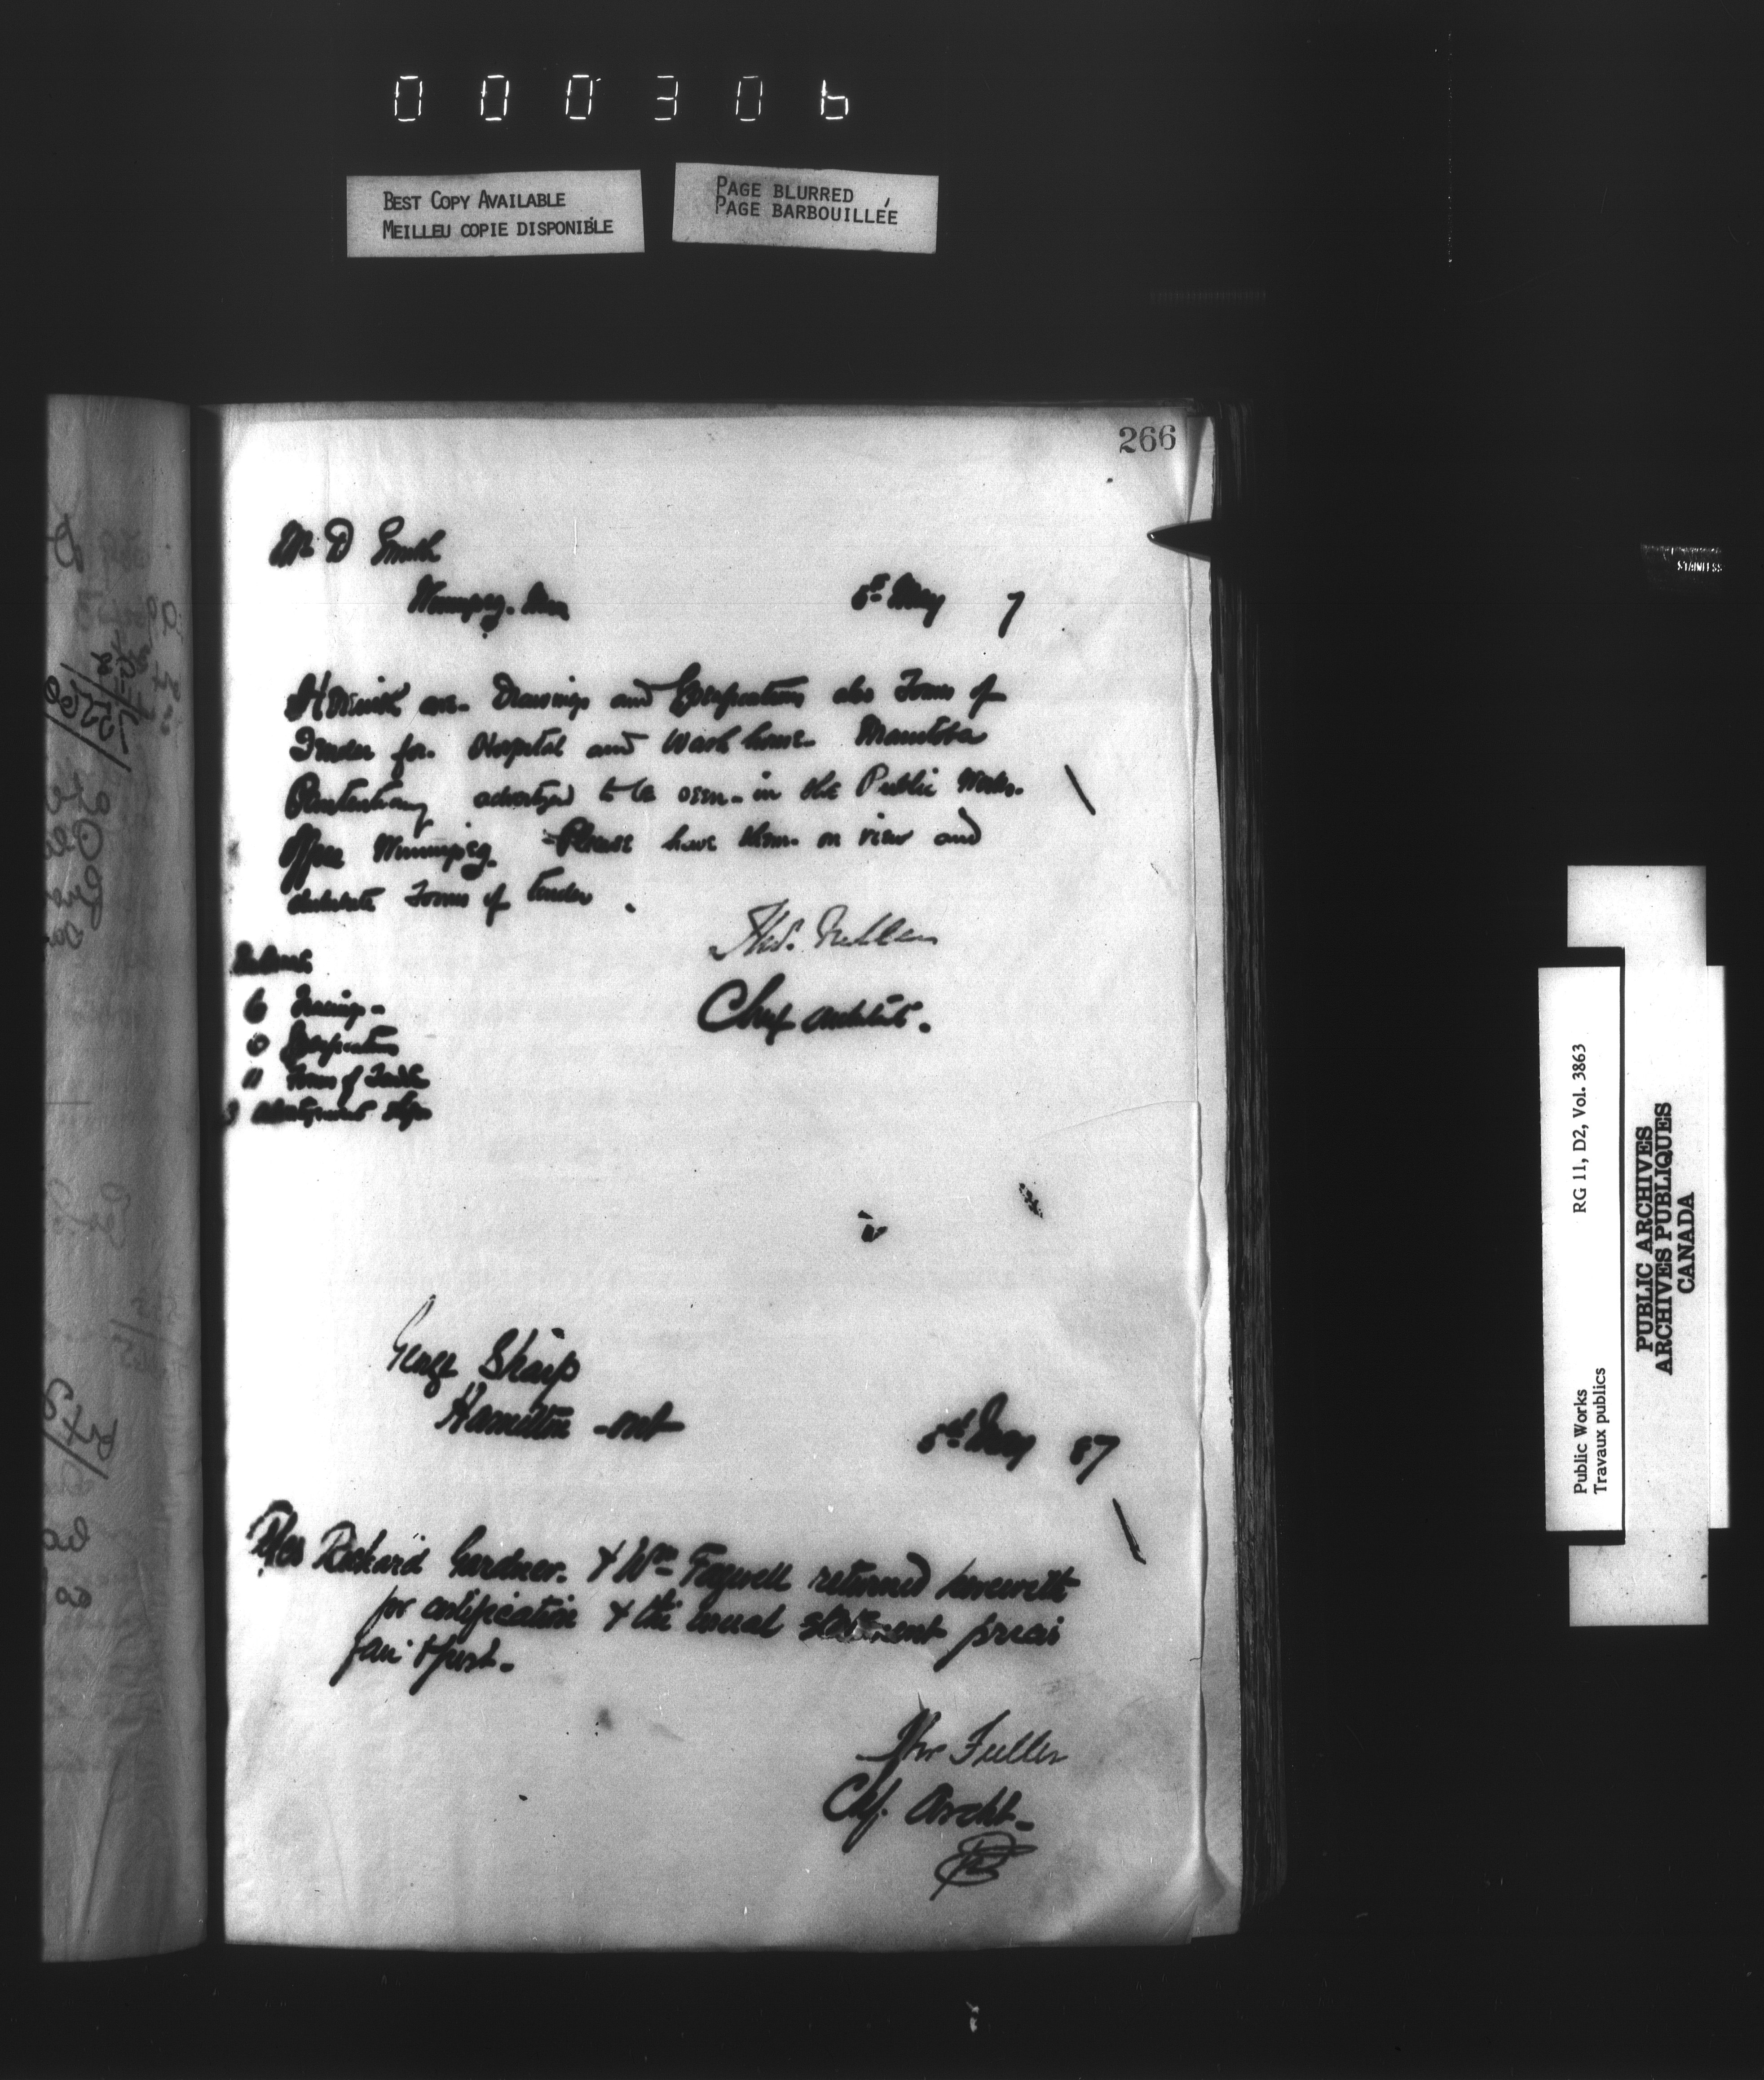 000306
BEST COPY AVAILABLE
MEILLEU COPIE DISPONIBLE
PAGE BLURRED
PAGE BARBOUILLÉE
266
Mr D Smith
Winnipeg. Man
5th May 7
Herewith are Drawings and Specifications also Forms of
Tender for Hospital and Wash house Manitoba
Penitentiary advertized to be seen in the Public Works
Office Winnipeg. Please have them on view and
Forms of tender.
Thos. Fuller
Chief Architect.
6 Drawings
6 Specifications
11 Forms of Tender
3 Advertizement slips
George Sharp
Hamilton - Ont
5th May 87
Richard Gardner. & Wm Fagwell returned herewith
for certification & the usual statement prices
fair & just.
Thos Fuller
Chf. Archt.
STAINLESS
Public Works
Travaux publics
RG 11, D2, Vol. 3863
PUBLIC ARCHIVES
ARCHIVES PUBLIQUES
CANADA